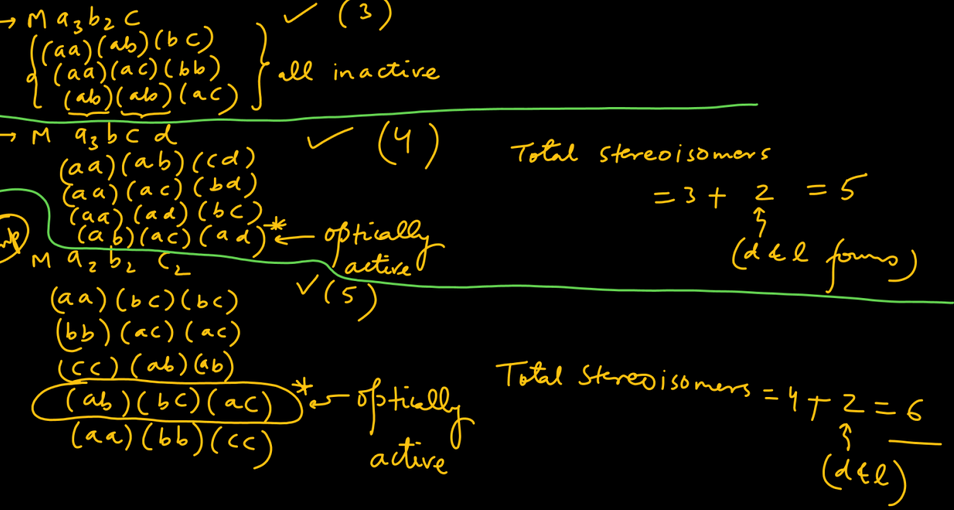 → M a₃b₂c ✓ (3)
(aa)(ab)(bc)
(aa)(ac)(bb)
(ab)(ab)(ac)
all inactive
→ M a₃bcd ✓ (4)
(aa)(ab)(cd)
(aa)(ac)(bd)
(aa)(ad)(bc)
(ab)(ac)(ad)* ← optically active
Total stereoisomers
= 3 + 2 = 5
(d & l forms)
M a₂b₂c₂
✓ (5)
(aa)(bc)(bc)
(bb)(ac)(ac)
(cc)(ab)(ab)
(ab)(bc)(ac)* ← optically active
(aa)(bb)(cc)
Total stereoisomers = 4 + 2 = 6
(d & l)